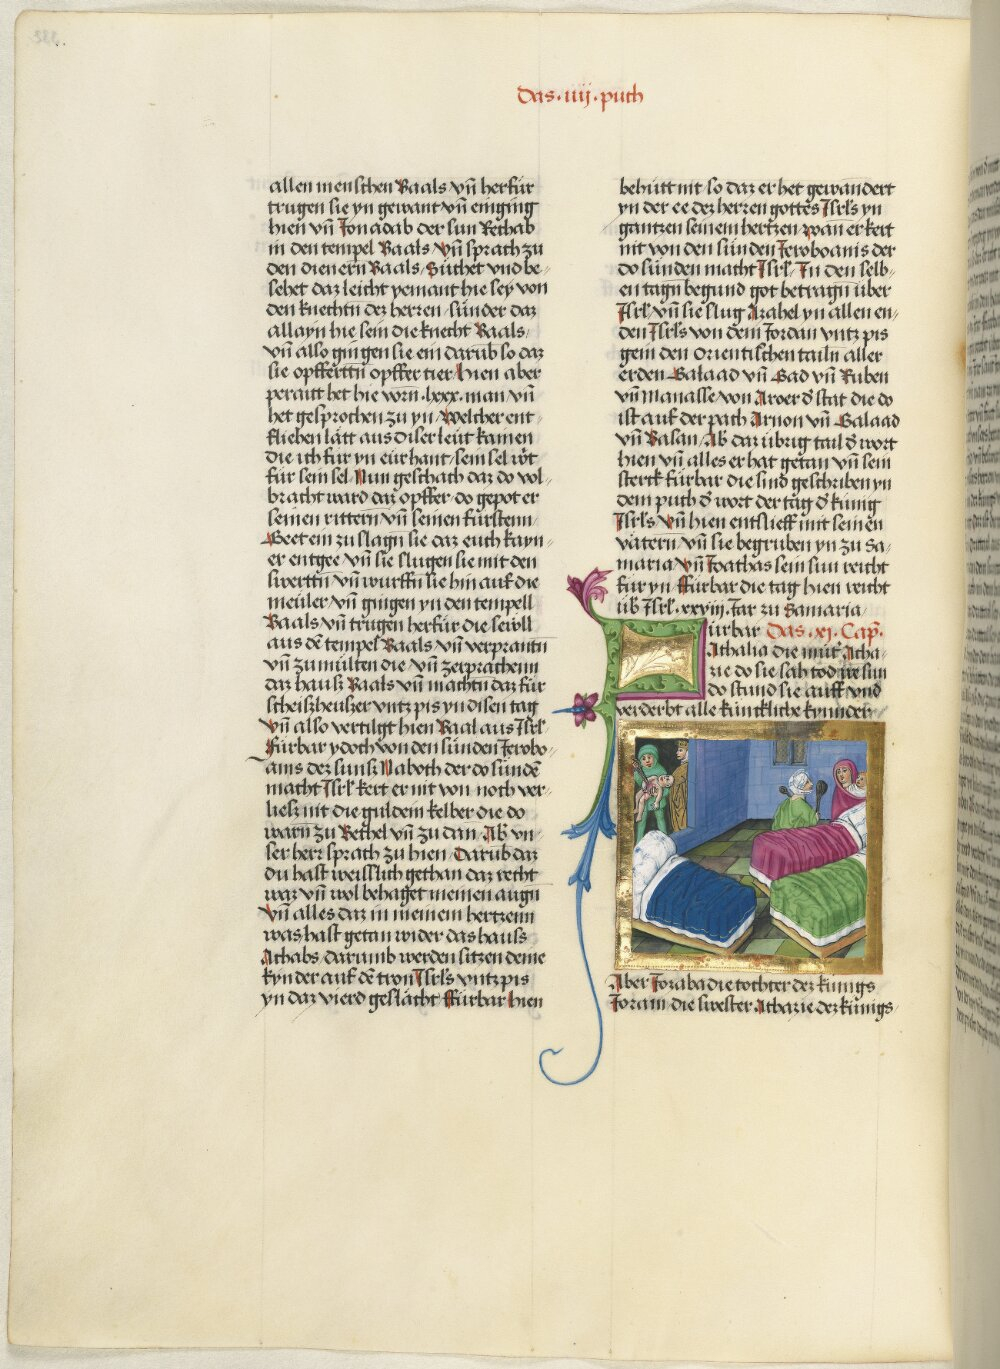 das · iiij · puch
allen menschen Baals vn̄ herfür
trugen sie yn gewant vn̄ einging
hien vn̄ Jonadab der sun Rechab
in den tempel Baals / vn̄ sprach zu
den dienern Baals / Süchet vnd be⸗
sehet daz leicht yemant hie sey von
den knechtn̄ dez herren / sünder daz
allayn hie sein die knecht Baals /
vn̄ also gingen sie ein darūb so daz
sie opffertn̄ opffer tier / hien aber
perait het hie vorn · lxxx · man vn̄
het gesprochen zu yn / Welcher ent⸗
fliehen lätt aus diser leüt kainen
die ich für yn eür hant / sein sel wt
für sein sel / Nun geschach daz do vol⸗
bracht ward daz opffer · do gepot er
seinen rittern vn̄ seinen fürstenn
Geet ein zu slagn sie daz euch kayn⸗
er entgee vn̄ sie slugen sie mit den
swertn̄ vn̄ wurffn̄ sie hin auf die
meüler vn̄ gingen yn den tempell
Baals vn̄ trügen herfür die sewll
aus dē tempel Baals vn̄ verprantn̄
vn̄ zumülten die vn̄ zerprachenn
daz hausz Baals vn̄ machtn̄ daz für
scheiszheuszer vntz pis yn disen tag
vn̄ also vertilgt hien Baal aus Isrl̄
Fürbar ydoch von den sünden Jerobo⸗
ams dez sunsz Naboth der do sündē
macht Isrl̄ kert er nit von noch ver⸗
liesz nit die guldein kelber die do
warn̄ zu Bethel vn̄ zu dan / Ab vn⸗
ser herr sprach zu hien / Darūb daz
du hast weisslich gethan daz recht
waz vn̄ wol behaget meinen augn̄
vn̄ alles daz in meinem hertzenn
was hast getan wider das hauss
Achabs / darumb werden sitzen deine
kynder auf dē tron Isrl̄s vntz pis
yn daz vierd geslächt / Fürbar hien
behütt nit so daz er het gewandert
yn der ee dez herren gottes Isrl̄s yn
gantzen seinem hertzen / wan er kert
nit von den sünden Jeroboams der
do sünden macht Isrl̄ / In den selb⸗
en tagn̄ begund got betragn̄ über
Isrl̄ / vn̄ sie slug Azahel yn allen en⸗
den Isrl̄s von dem Jordan vntz pis
gein den orientischen tailn aller
erden Galaad vn̄ Gad vn̄ Ruben
vn̄ Manasse von Aroer d stat die do
ist auf der pach Arnon vn̄ Galaad
vn̄ Basan / Ab daz übrig tail d wort
hien vn̄ alles er hat getan vn̄ sein
sterck fürbar die sind geschriben yn
dem puch d wort der tag d künig
Isrl̄s / vn̄ hien entslieff mit seinēn
vätern vn̄ sie begruben yn zu Sa⸗
maria / vn̄ Joathas sein sun reicht
für yn / Fürbar die tag hien reicht
üb Isrl̄ · xxviij · Jar zu Samaria /
ürbar Das · xj · Cap̄ ·
Athalia die mut Atha⸗
zie do sie sah tod ire sun
do stund sie auff vnd
verderbt alle künckliche kynnder
Aber Jozaba die tochter dez künigs
Joram die swester Athazie dez künigs⸗